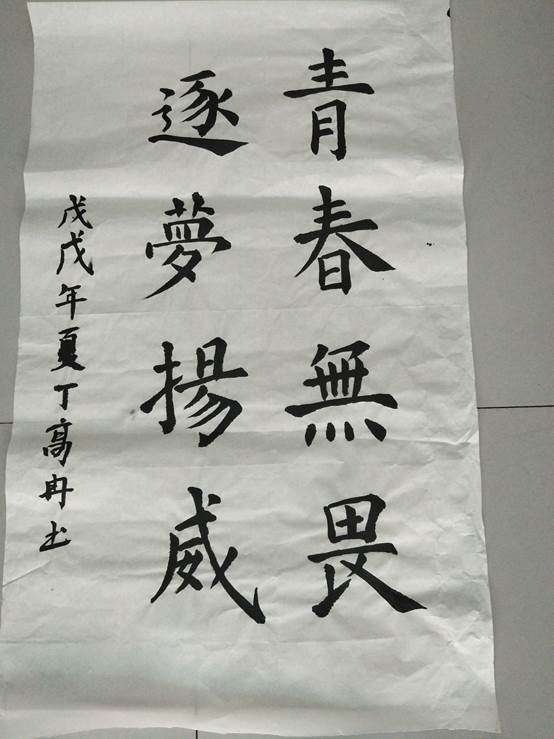 青春無畏
逐夢揚威
戊戌年夏丁高冉书